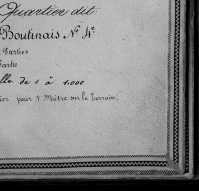 Quartier dit
Boutinais N° 4e
Parties
Partie
lle de 1 à 1.000
pour 1 Mètre sur le Terrain.